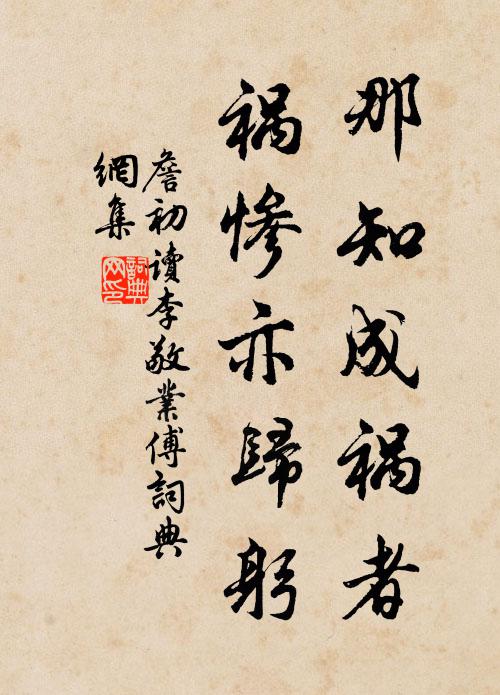 那知成禍者
禍慘亦歸躬
詹初讀李敬業傳詞典
網集
詞典
网印